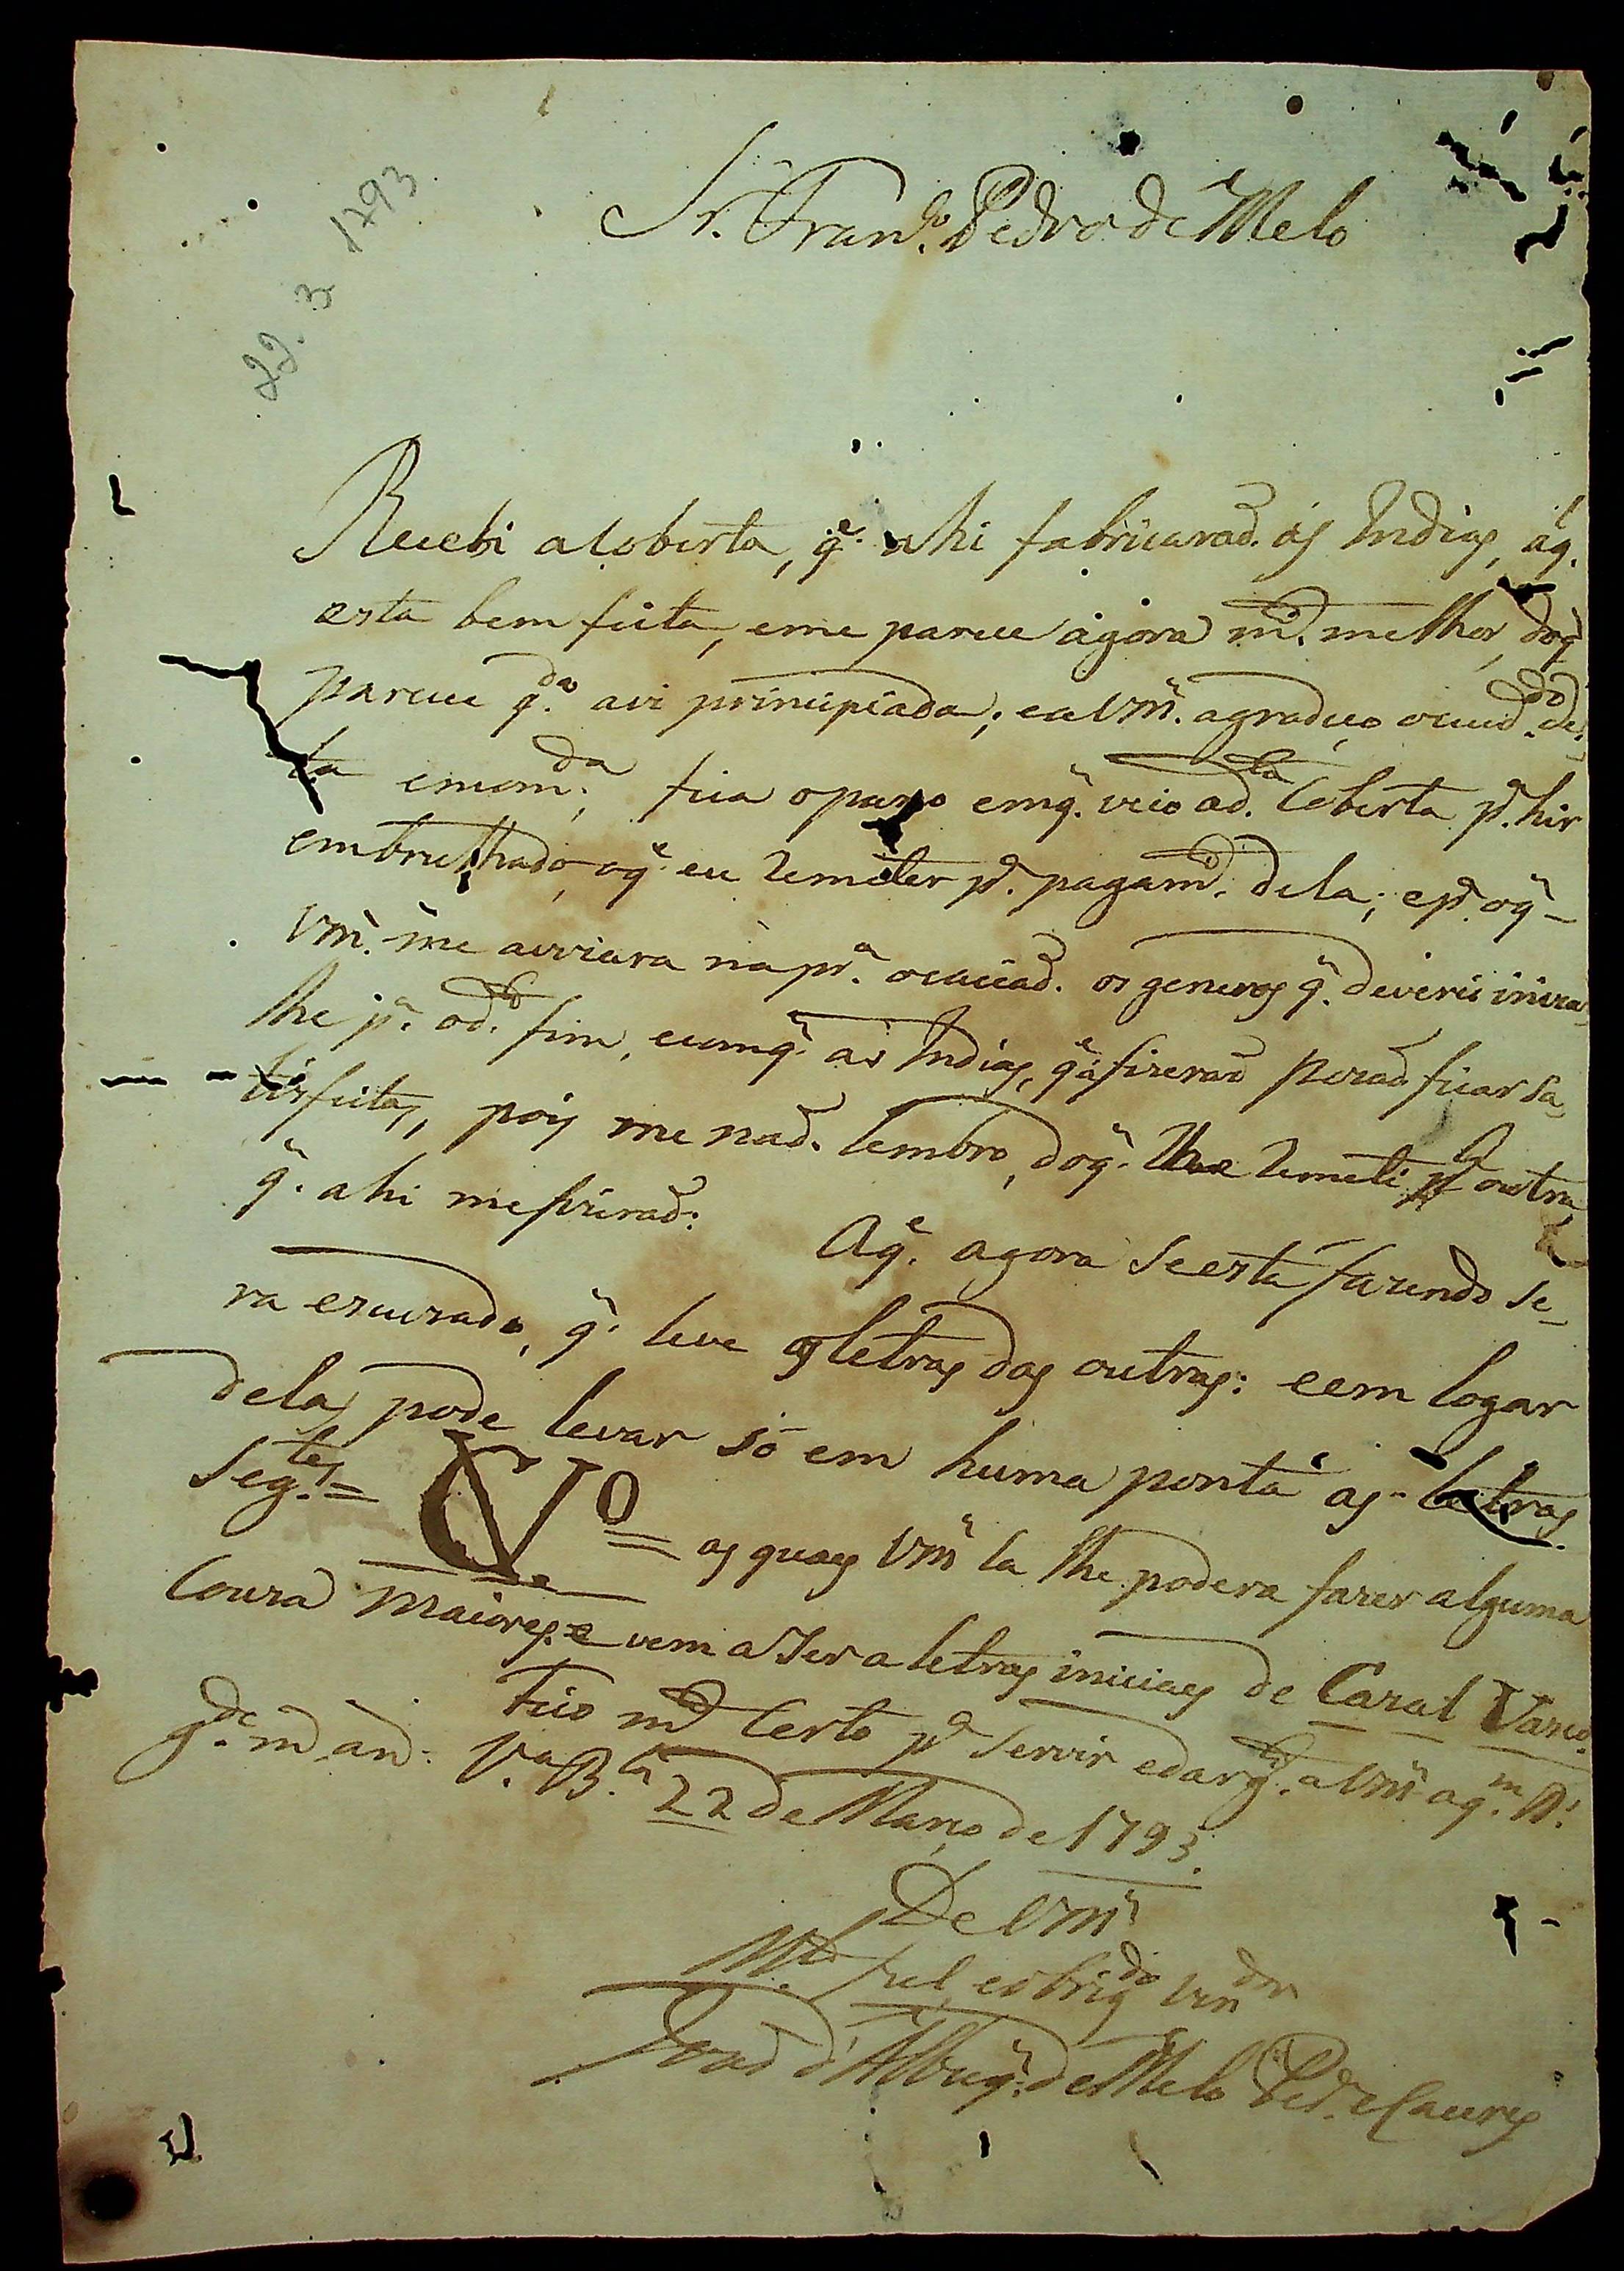 22. 3 1793
Sr. Franco. Pedro de Melo
Recebi a Coberta, qe. ahi fabricarão. as Indias, aq.
esta bem feita, eme parece agora mto. melhor, doq
parece qdo. avi principiada; eaVm. agradeço ocuidado. de
ta emomda. fica opano emq. veio adta. Coberta pa. hir
embrulhado, oqe eu Remeter pa. pagamto. dela; epa. oq
Vm. me avizara na pra. ocaciaõ. os generos q. deverei inviar
lhe pa. odo. fim, comq. as Indias, qe afizeraõ posaõ ficar sa
tisfeitas, pois me naõ. lembro, doq. lhe Remeti pla outra,
q. ahi mefizeraõ:
Aqe. agora seesta fazendo se
ra escuzado, q. leve as letras das outras: eem logar
delas pode levar só em huma ponta as letras
Segtes. = CVo = as quaes Vm la lhe podera fazer alguma
Couza maiores. e vem aSer a letras iniciaes de Cazal Vasco.
fico mto Certo pa Servir edarg. aVm aqm. Ds.
gde. ms. ans. Va. Ba. 22 de Março de 1793.
De Vm
Mto. fiel, eobrigdo Vendor
Joaõ d'Albuqe. deMelo Pera. eCaceres